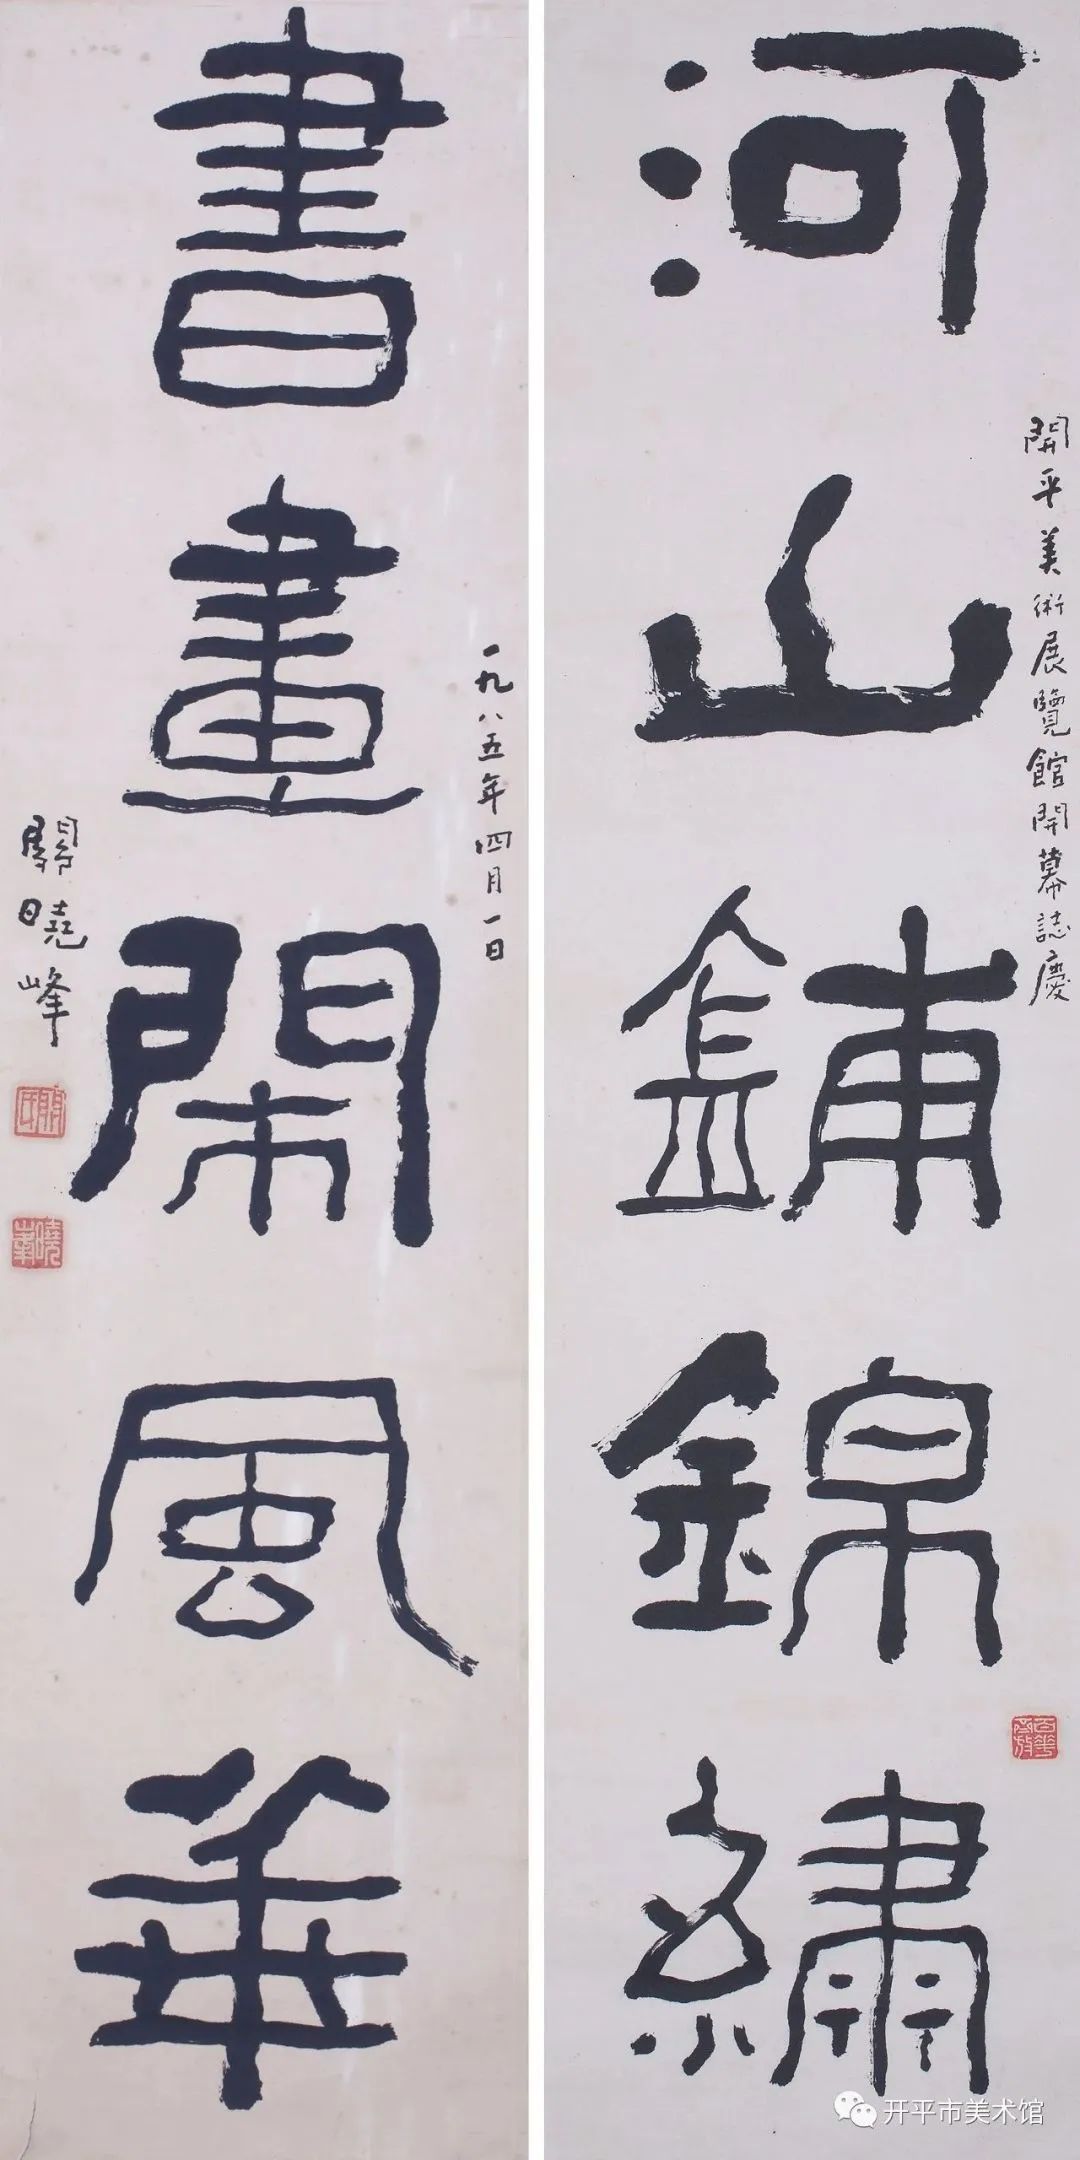 河山鋪錦繡
開平美術展覽館開幕誌慶
書畫閑風華
一九八五年四月一日
關曉峰
關氏
曉峯
百花齊放
开平市美术馆